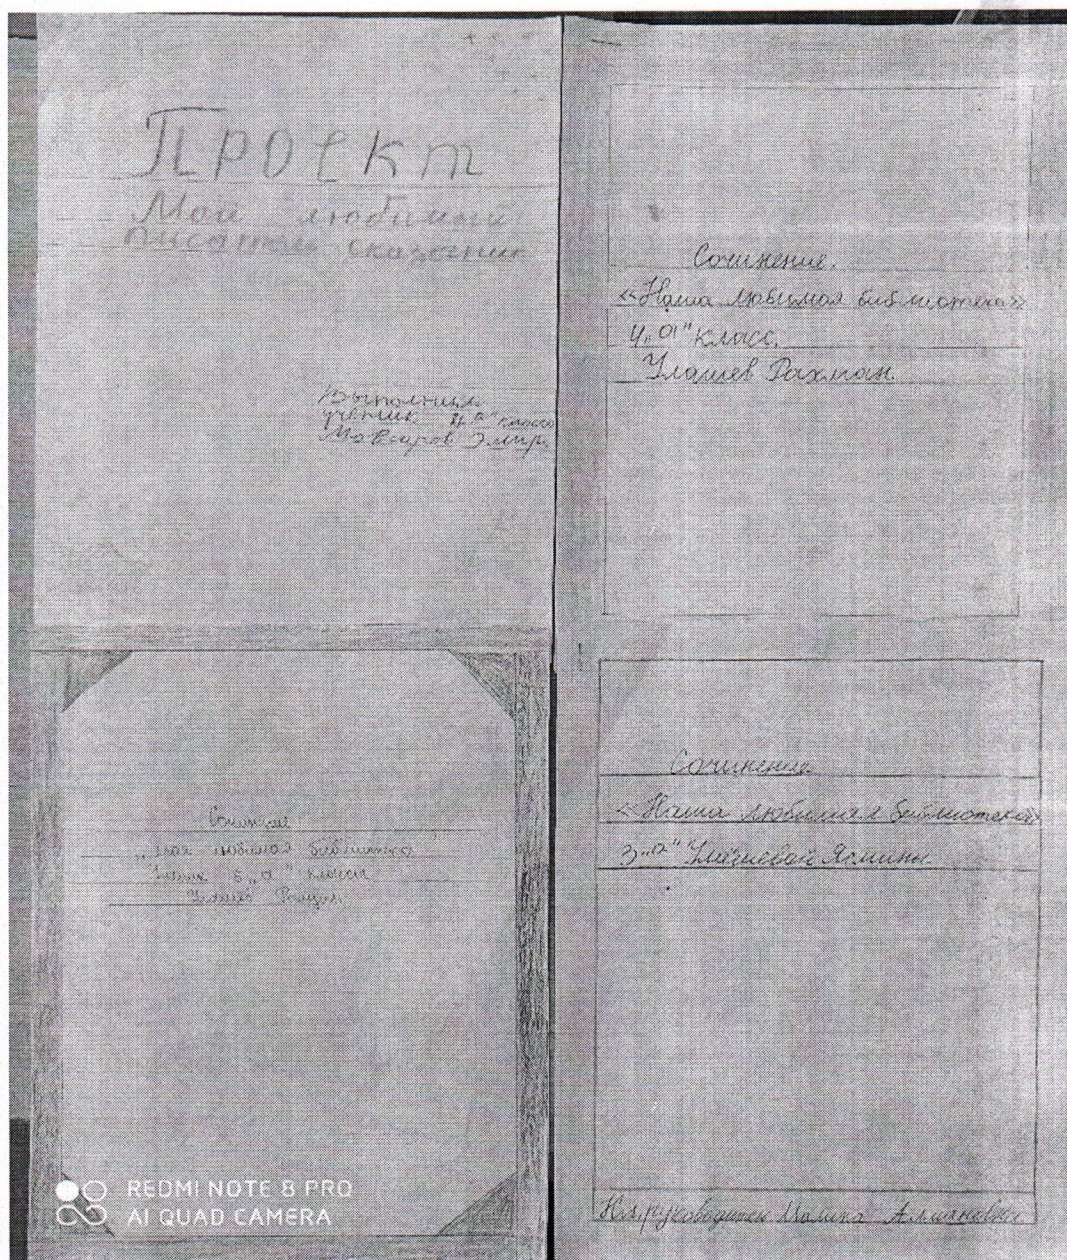 Проект
Мой любимый
писатель сказочник
Выполнил
ученик 4 "а" класса
Эмир
Сочинение.
«Наша любимая библиотека»
4 „а" класс.
Улашев Рахман
Сочинение
„Моя любимая библиотека"
"а" класса
Сочинение
«Наша любимая библиотека»
3 „а" Ясмины
Кл. руководитель Малика
REDMI NOTE 8 PRO
AI QUAD CAMERA